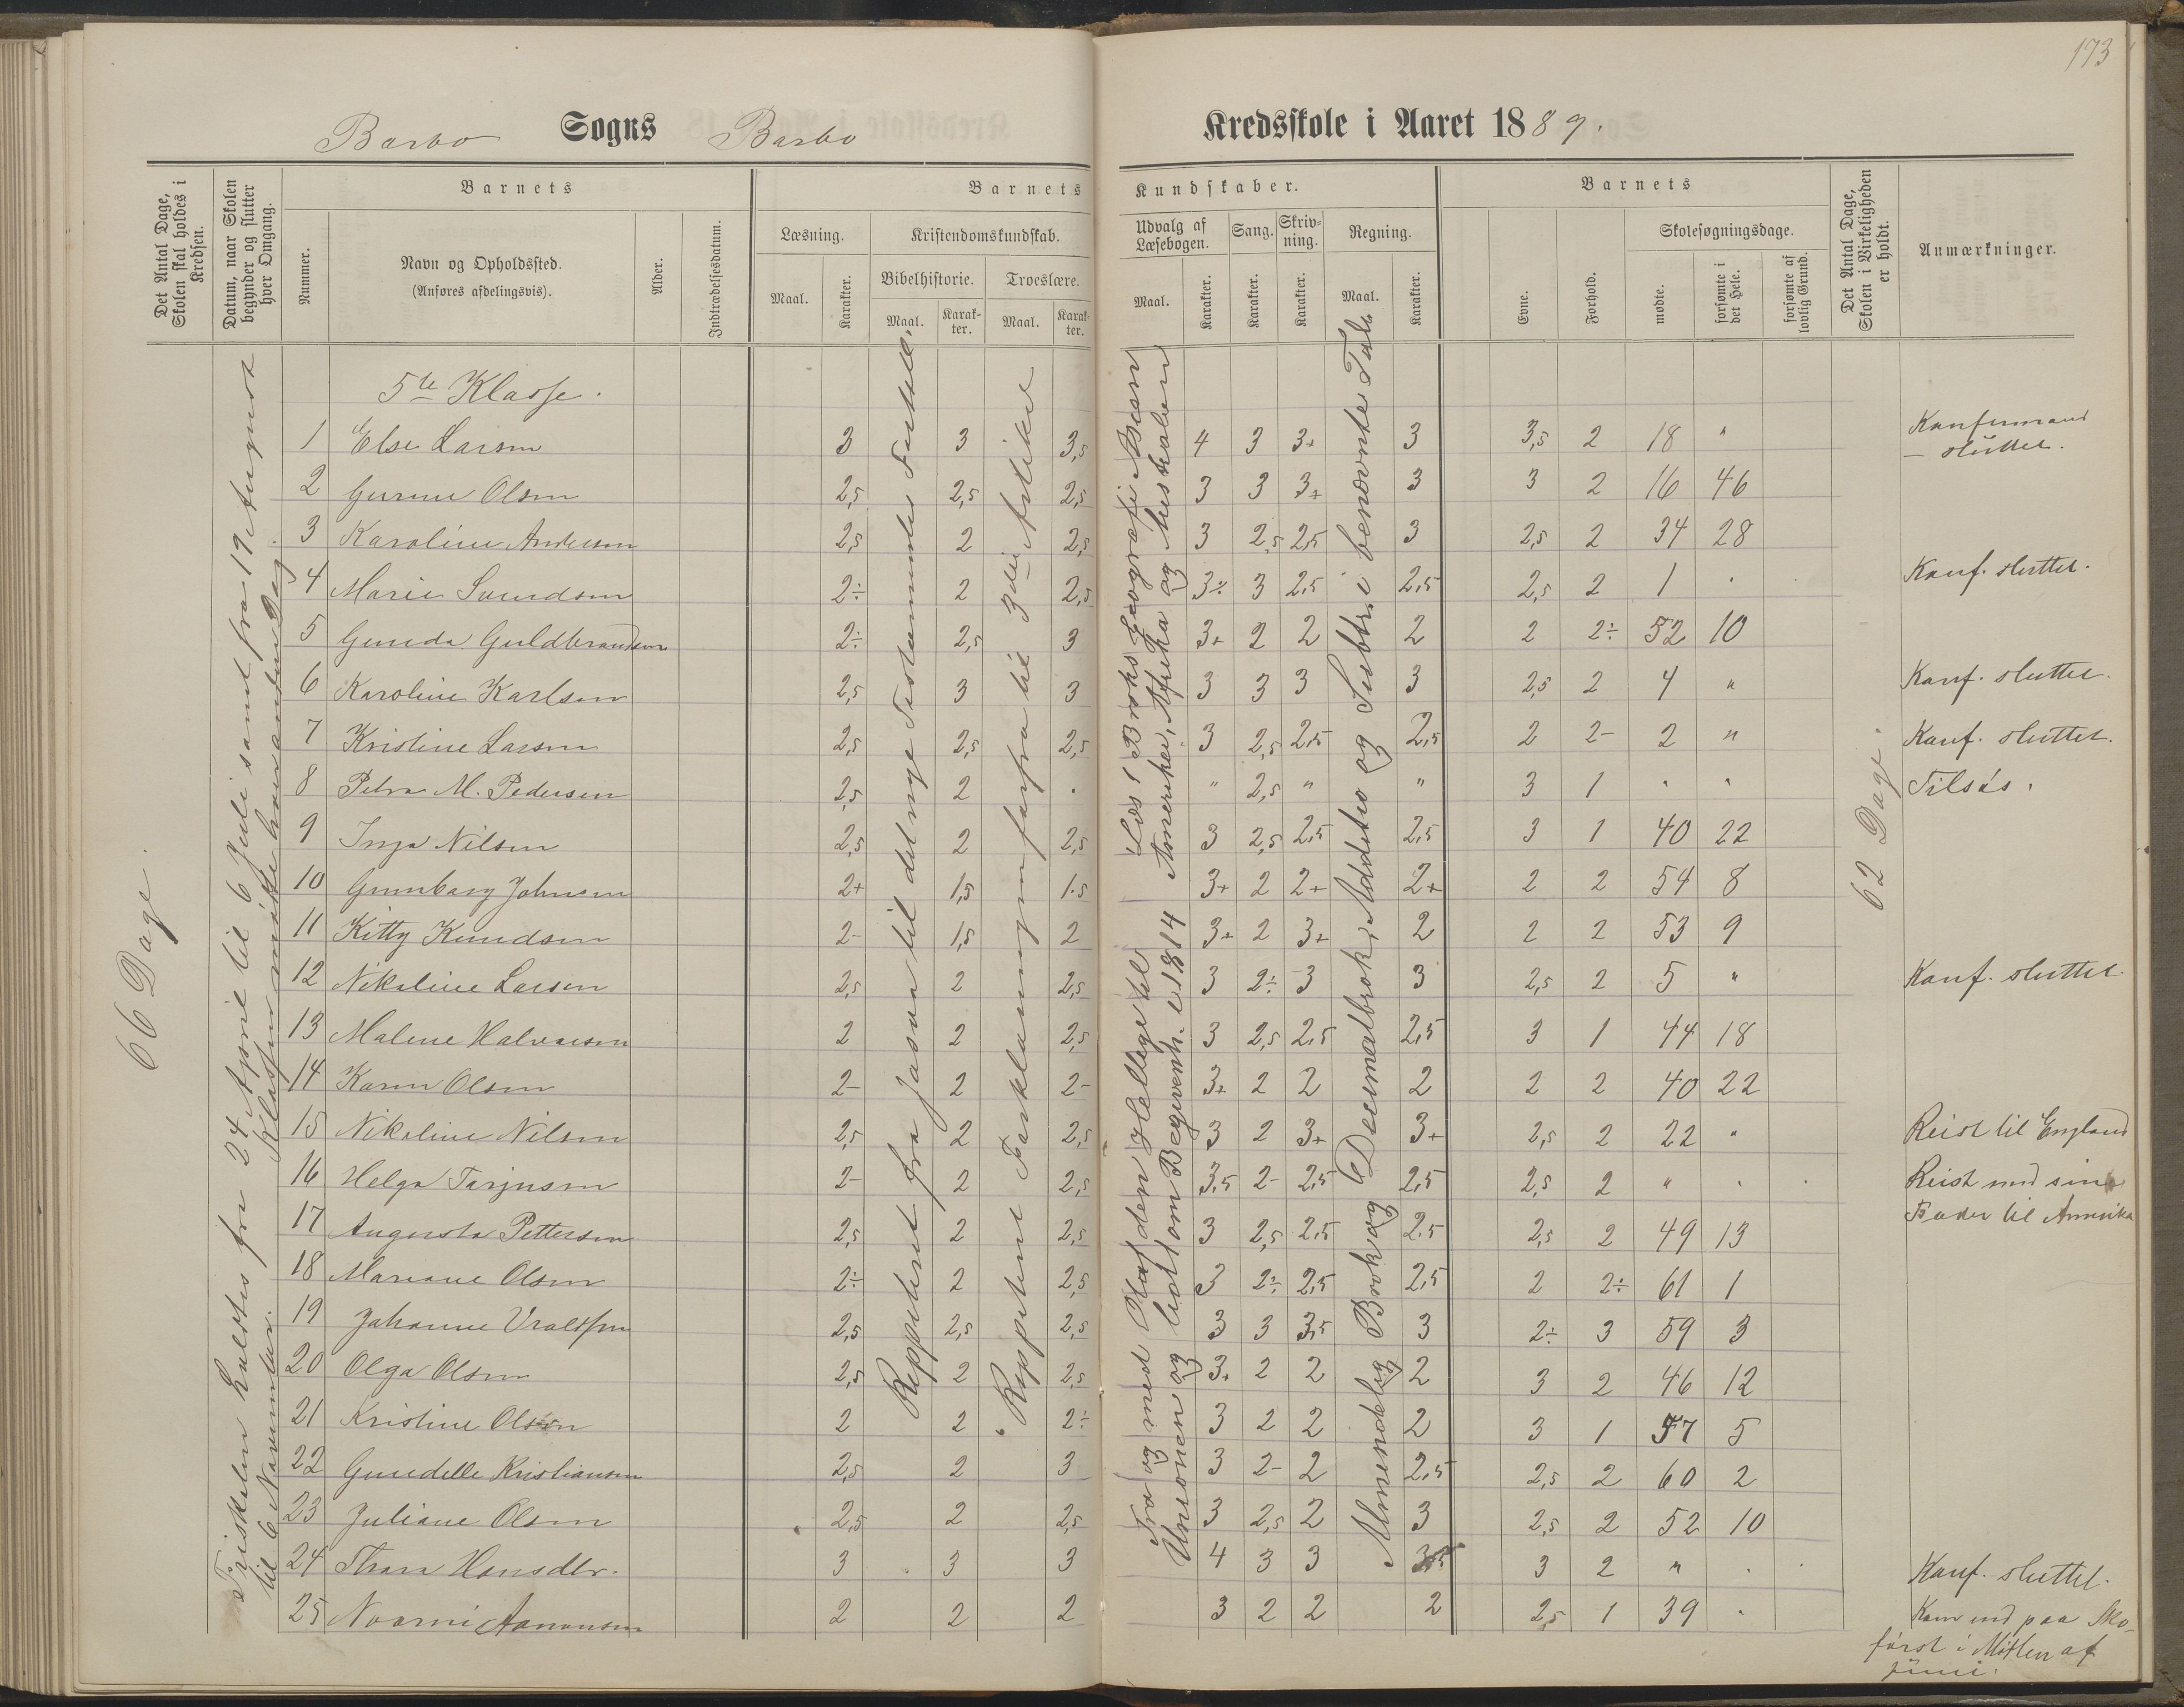 173
Barbo Sogns Barbo Kredsskole i Aaret 1889.
Det Antal Dage, Skolen skal holdes i Kredsen.
Datum, naar Skolen begynder og slutter hver Omgang.
Barnets
Nummer.
Navn og Opholdssted.
(Anføres afdelingsvis).
Alder.
Indtrædelsesdatum.
Barnets Kundskaber.
Læsning.
Maal.
Karakter.
Kristendomskundskab.
Bibelhistorie.
Maal.
Karakter.
Troeslære.
Maal.
Karakter.
Udvalg af Læsebogen.
Maal.
Karakter.
Sang.
Karakter.
Skrivning.
Karakter.
Regning.
Maal.
Karakter.
Barnets
Evne.
Forhold.
Skolesøgningsdage.
mødte.
forsømte i det Hele.
forsømte af lovlig Grund.
Det Antal Dage, Skolen i Virkeligheden er holdt.
Anmærkninger.
66 Dage.
fra 24 April til 6 Juli samt fra 19 August
til 6 November. Klassen møtte hver anden Dag
Reppetent fra Josva til det nye Testammente
Reppetent Forklaringen forfra til 3die Artikel
Fra og med Olaf den Hellige til
Unionen og lidt om Begivenh. i 1814
Læst i Broks Geografi
Amerika, Afrika og Australien
Almindelig Brok og Decimalbrok, Additio og Subtr. i benævnte Tal
62 Dage.
5te Klasse.
1 Else Larsen 3 3 3,5 4 3 3+ 3 3,5 2 18 " Konfirmand
- sluttet.
2 Gurine Olsen 2,5 2,5 2,5 3 3 3+ 3 3 2 16 46
3 Karoline Andersen 2,5 2 2,5 3 2,5 2,5 3 2,5 2 34 28
4 Marie Svendsen 2÷ 2 2,5 3÷ 3 2,5 2,5 2,5 2 1 . Konf. sluttet.
5 Gunda Guldbrandsen 2÷ 2,5 3 3+ 2 2 2 2 2÷ 52 10
6 Karoline Karlsen 2,5 3 3 3 3 3 3 2,5 2 4 " Konf. sluttet.
7 Kristine Larsen 2,5 2,5 2,5 3 2,5 2,5 2,5 2 2- 2 " Konf. sluttet.
8 Petra M. Pedersen 2,5 2 . " 2,5 " " 3 1 " " Tilsøs.
9 Inga Nilsen 2,5 2 2,5 3 2,5 2,5 2,5 3 1 40 22
10 Gunborg Johnsen 2+ 1,5 1.5 3+ 2 2+ 2+ 2 2 54 8
11 Kitty Knudsen 2- 1,5 2 3+ 2 3+ 2 2 2 53 9
12 Nikoline Larsen 2,5 2 2,5 3 2÷ 3 3 2,5 2 5 " Konf. sluttet.
13 Malene Halvorsen 2 2 2,5 3 2,5 2,5 2,5 3 1 44 18
14 Karen Olsen 2- 2 2- 3+ 2 2 2 2 2 40 22
15 Nikoline Nilsen 2,5 2 2,5 3 2 3+ 3+ 2,5 2 22 " Reist til England
16 Helga Terjusen 2- 2 2,5 3,5 2- 2,5 2,5 2,5 2 " . Reist med sin
Fader til Amerika
17 Augusta Pettersen 2,5 2 2,5 3 2,5 2,5 2,5 2,5 2 49 13
18 Mariane Olsen 2÷ 2 2,5 3 2÷ 2,5 2,5 2 2÷ 61 1
19 Johanne Vraldsen 2,5 2,5 2,5 3 3 3,5 3 2÷ 3 59 3
20 Olga Olsen 2,5 2 2,5 3+ 2 2 2 3 2 46 12
21 Kristine Olsen 2 2 2÷ 3 2 2 2 3 1 57 5
22 Gundelle Kristiansen 2,5 2 3 3 2- 2 2,5 2,5 2 60 2
23 Juliane Olsen 2,5 2 2,5 3 2,5 2 3 2,5 2 52 10
24 Thora Hansdtr. 3 3 3 4 3 3 3,5 3 2 " . Konf. sluttet.
25 Noomi Aanonsen 2 2 2 3 2 2 2 2,5 1 39 . Kom ind paa Sko-
først i Midten af
juni.